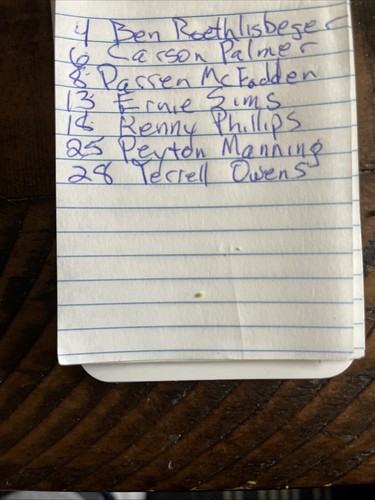 4 Ben Roethlisbeger
6 Carson Palmer
8 Darren McFadden
13 Ernie Sims
18 Kenny Phillips
25 Peyton Manning
28 Terrell Owens